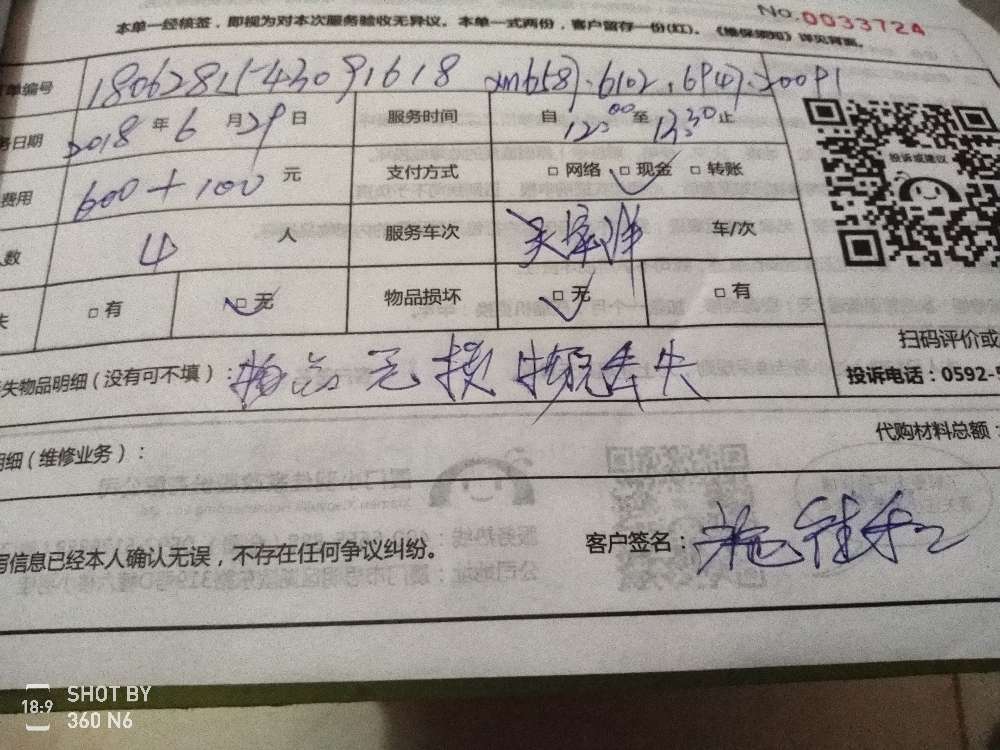 No.0033724
本单一经核签，即视为对本次服务验收无异议。本单一式两份，客户留存一份(红)。《维保须知》详见背面。
单编号 1806281543091618
务日期 2018 年 6 月 29 日 服务时间 自 12:00 至 13:30 止
费用 600+100 元 支付方式 □ 网络 □ 现金 □ 转账
人数 4 人 服务车次 车/次
投诉或建议
失 □ 有 □ 无 物品损坏 □ 无 □ 有
扫码评价或
失物品明细（没有可不填）： 物品无损
丢失
投诉电话：0592-5
代购材料总额：
明细（维修业务）：
写信息已经本人确认无误，不存在任何争议纠纷。 客户签名：
18:9 SHOT BY
360 N6